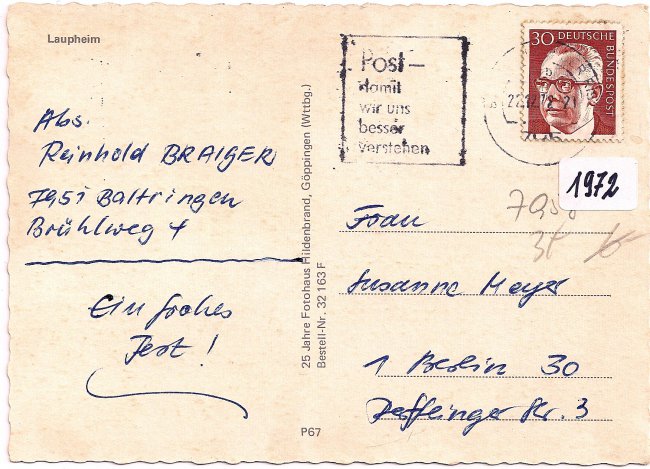 Laupheim
Abs.
Reinhold BRAIGER
7951 Baltringen
Brühlweg 4
Ein frohes
Fest!
25 Jahre Fotohaus Hildenbrand, Göppingen (Wttbg.)
Bestell-Nr. 32 163 F
P67
Post –
damit
wir uns
besser
verstehen
30 DEUTSCHE
BUNDESPOST
22.12.72-21
1972
Frau
Susanne Meyer
1 Berlin 30
Derfflinger Str. 3